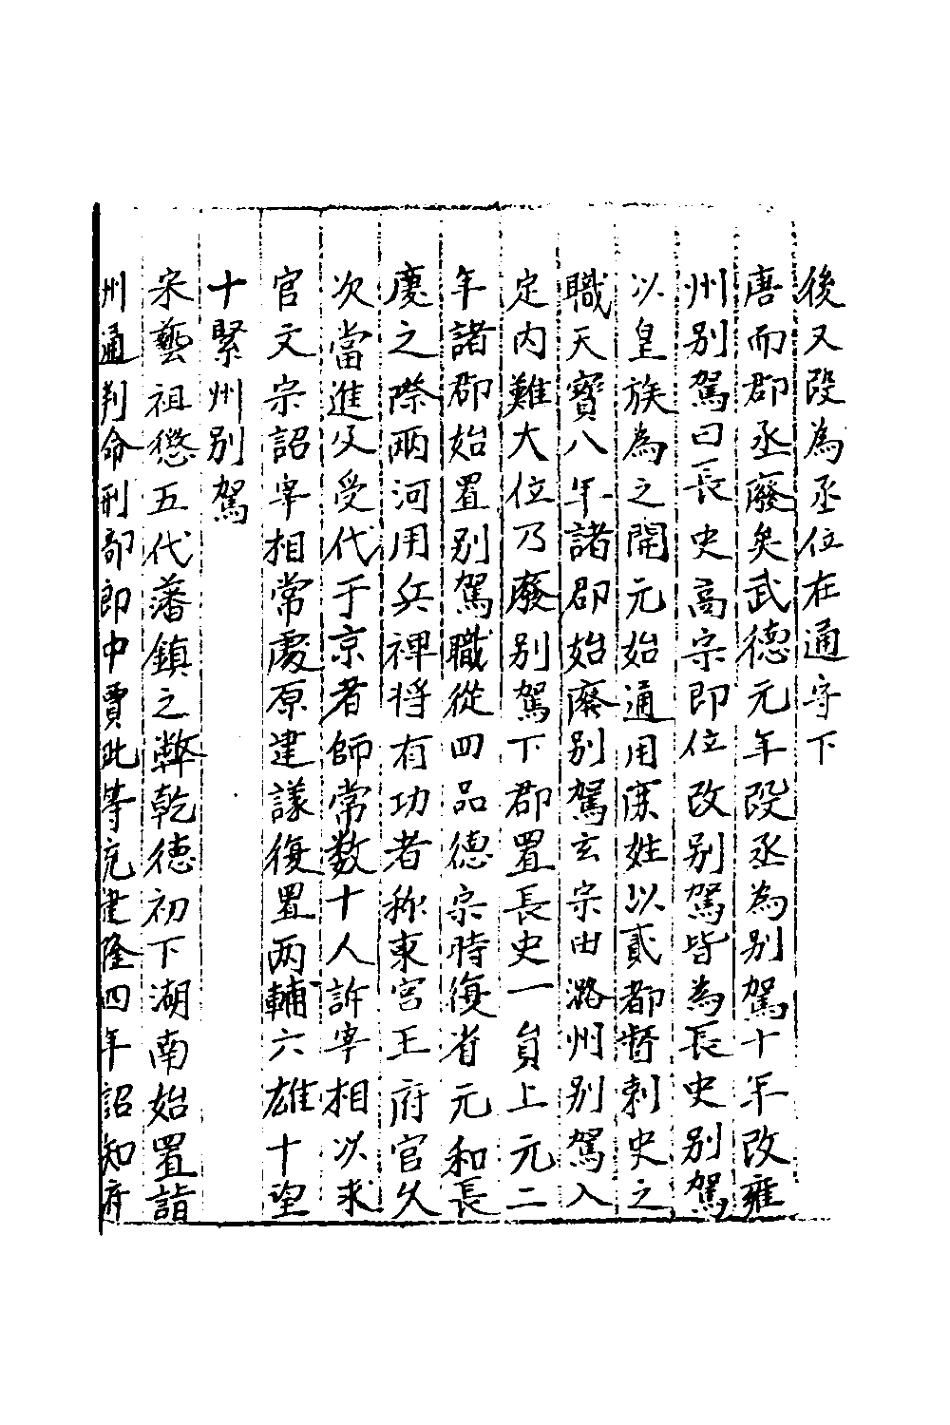 後又改為丞位在通守下
唐而郡丞廢矣武德元年改丞為别駕十年改雍
州别駕曰長史高宗即位改别駕皆為長史别駕
以皇族為之開元始通用庶姓以貳都督刺史之
職天寳八年諸郡始廢别駕玄宗由潞州别駕入
定内難大位乃廢别駕下郡置長史一員上元二
年諸郡始置别駕職從四品德宗時復省元和長
慶之際兩河用兵裨將有功者称東宫王府官久
次當進及受代于京者師常数十人訴宰相以求
官文宗詔宰相常處原建議復置两輔六雄十望
十緊州别駕
宋藝祖懲五代藩鎮之弊乾德初下湖南始置諸
州通判命刑部郎中賈玭等充建隆四年詔知府